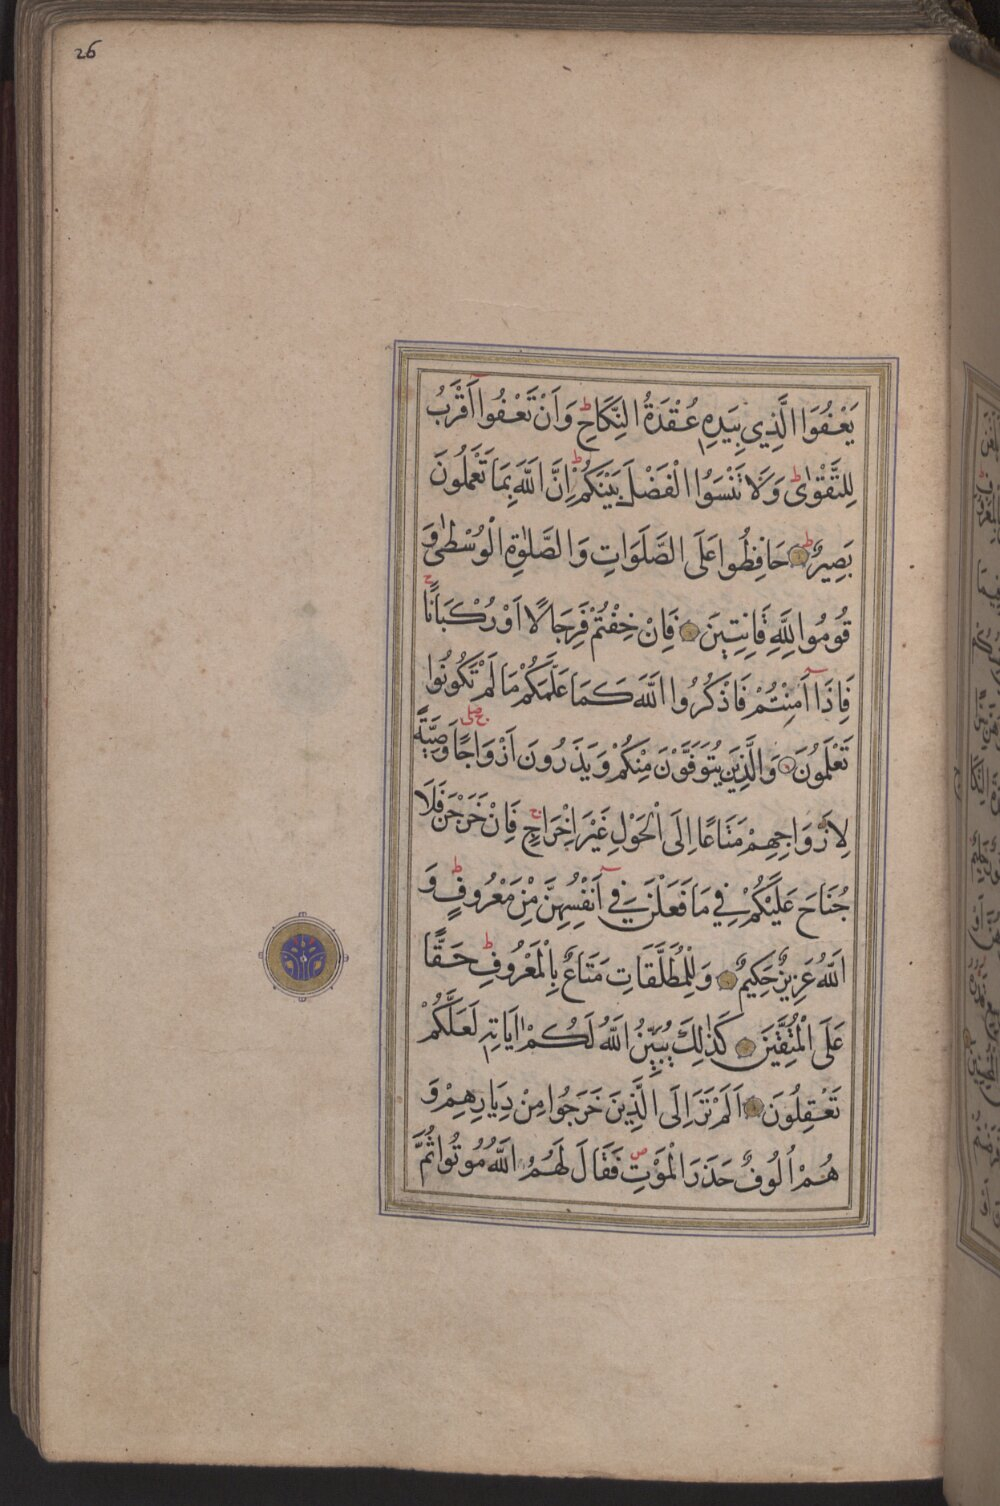 26
يَعْفُوَا الَّذِي بِيَدِهِ عُقْدَةُ النِّكَاحِ ط وَاَنْ تَعْفُوا اَقْرَبُ
لِلتَّقْوٰى ط وَلَا تَنْسَوُا الْفَضْلَ بَيْنَكُمْ ط اِنَّ اللّٰهَ بِمَا تَعْمَلُونَ
بَصِيرٌ ط حَافِظُوا عَلَى الصَّلَوَاتِ وَالصَّلٰوةِ الْوُسْطٰى وَ
قُومُوا لِلّٰهِ قَانِتِينَ فَاِنْ خِفْتُمْ فَرِجَالًا اَوْ رُكْبَانًا ج
فَاِذَا اَمِنْتُمْ فَاذْكُرُوا اللّٰهَ كَمَا عَلَّمَكُمْ مَا لَمْ تَكُونُوا
تَعْلَمُونَ وَالَّذِينَ يُتَوَفَّوْنَ مِنْكُمْ وَيَذَرُونَ اَزْوَاجًا وَصِيَّةً
لِاَزْوَاجِهِمْ مَتَاعًا اِلَى الْحَوْلِ غَيْرَ اِخْرَاجٍ ج فَاِنْ خَرَجْنَ فَلَا
جُنَاحَ عَلَيْكُمْ فِي مَا فَعَلْنَ فِي اَنْفُسِهِنَّ مِنْ مَعْرُوفٍ ط وَ
اللّٰهُ عَزِيزٌ حَكِيمٌ وَلِلْمُطَلَّقَاتِ مَتَاعٌ بِالْمَعْرُوفِ ط حَقًّا
عَلَى الْمُتَّقِينَ كَذٰلِكَ يُبَيِّنُ اللّٰهُ لَكُمْ اٰيَاتِهِ لَعَلَّكُمْ
تَعْقِلُونَ اَلَمْ تَرَ اِلَى الَّذِينَ خَرَجُوا مِنْ دِيَارِهِمْ وَ
هُمْ اُلُوفٌ حَذَرَ الْمَوْتِ ص فَقَالَ لَهُمُ اللّٰهُ مُوتُوا ثُمَّ